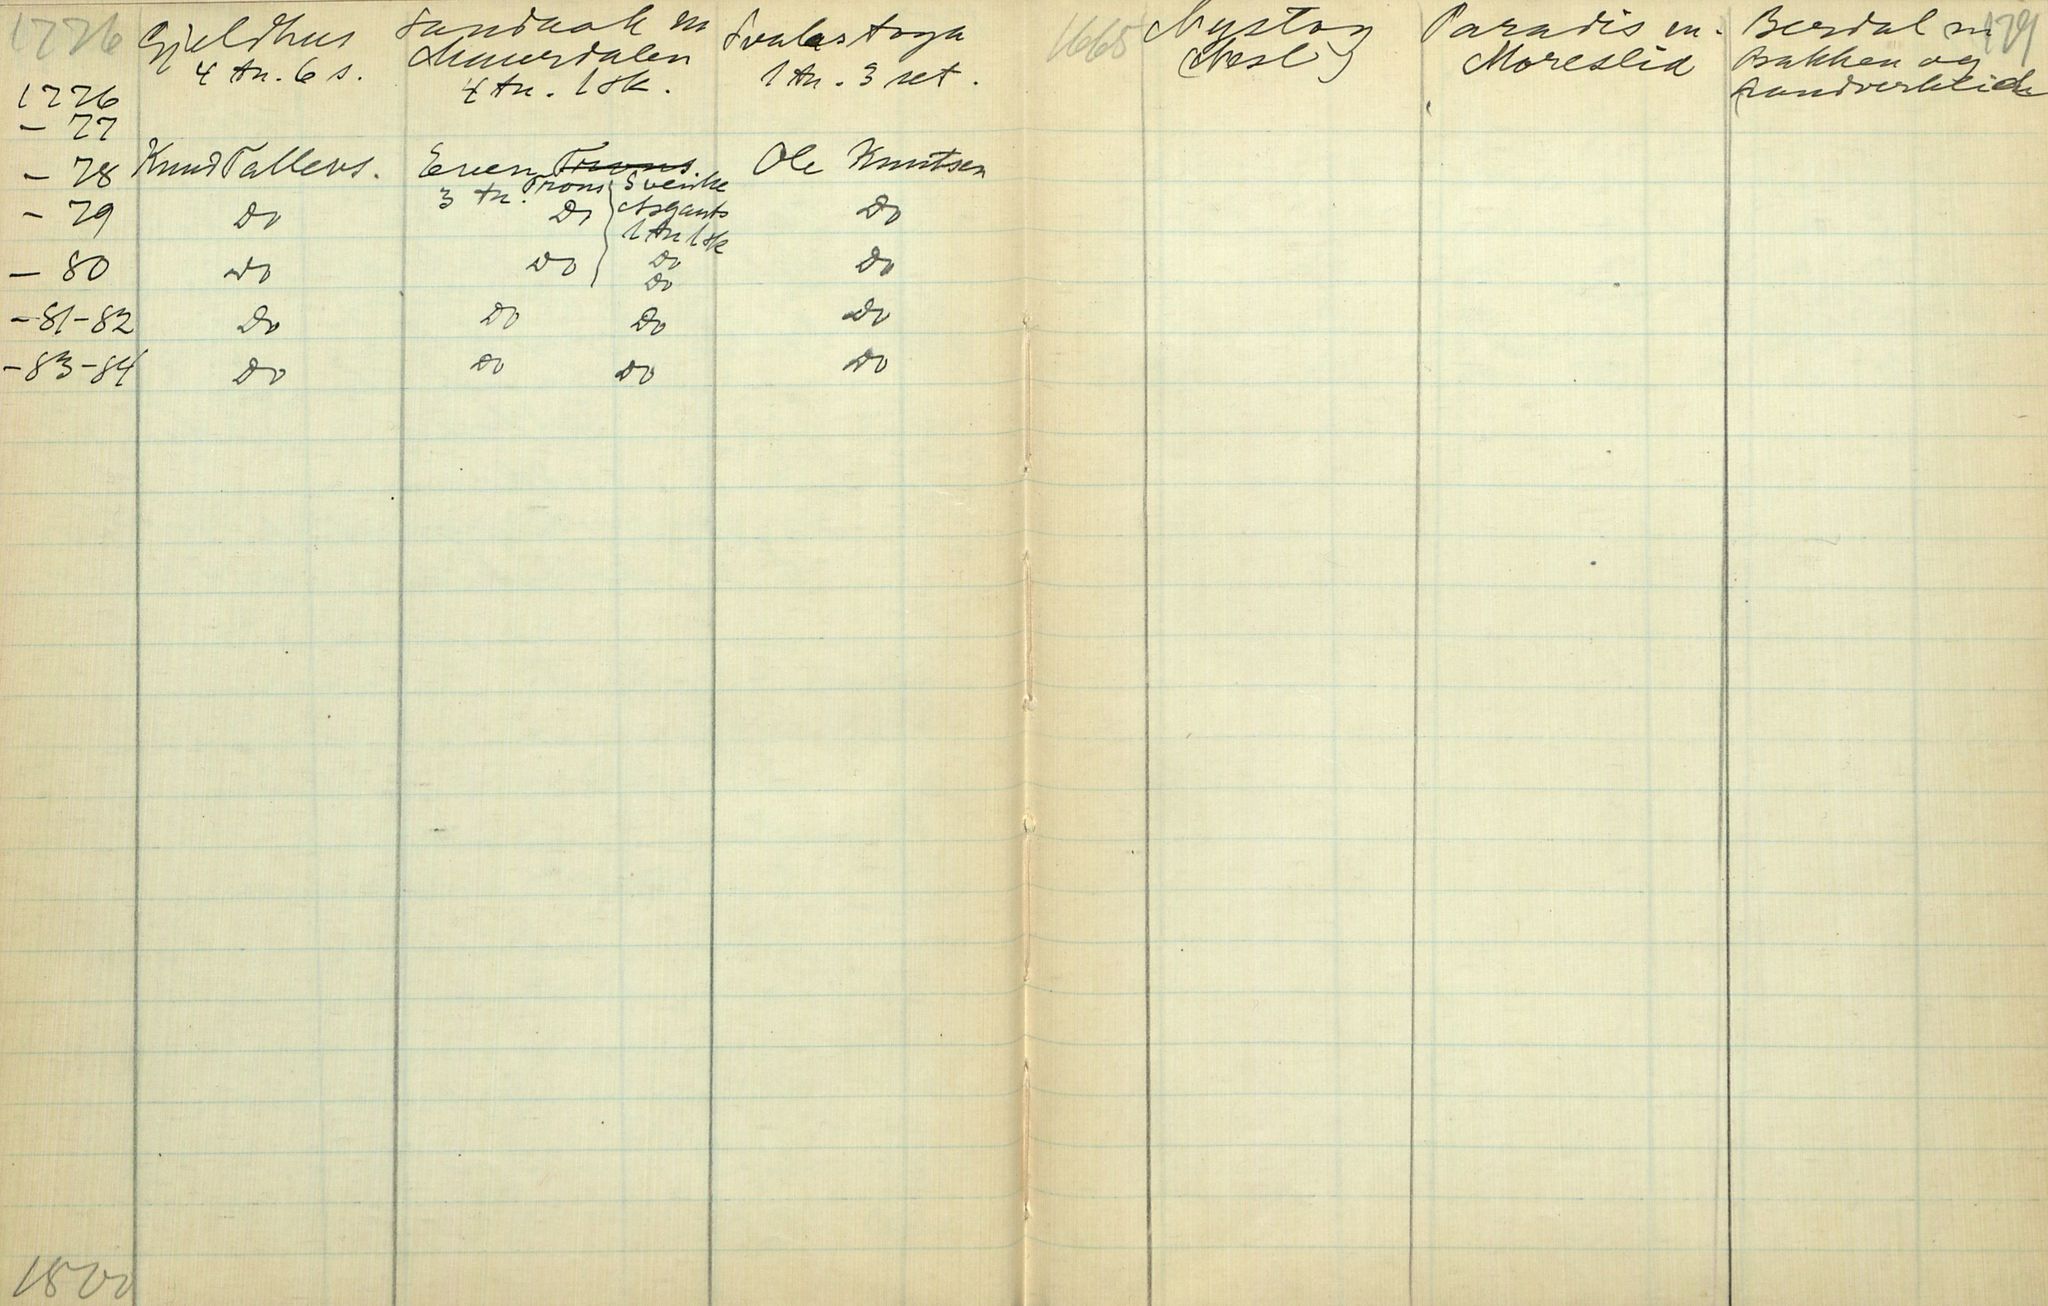 1776 Gjeldhus Sandaak m Svalastoga
4 tn. 6 s. Aamerdalen 1 tn. 3 set.
4 tn. 1 sk.
1776
- 77
- 78 Knud Tallevs. Even Trons. Ole Knutsen
3 tn. Trons Svenke
- 79 Do Do Asgauts Do
1 tn 1 sk
- 80 Do Do Do Do
Do
- 81-82 Do Do Do Do
- 83-84 Do Do Do Do
1800
1665 Nystog Paradis m. Berdal m 179
(Nesl) Moreslid Bakken og